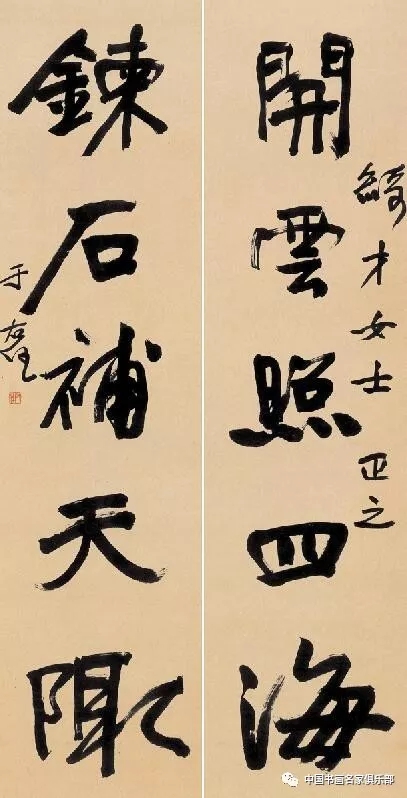 開雲照四海
綺才女士正之
鍊石補天陬
于右任
中国书画名家俱乐部